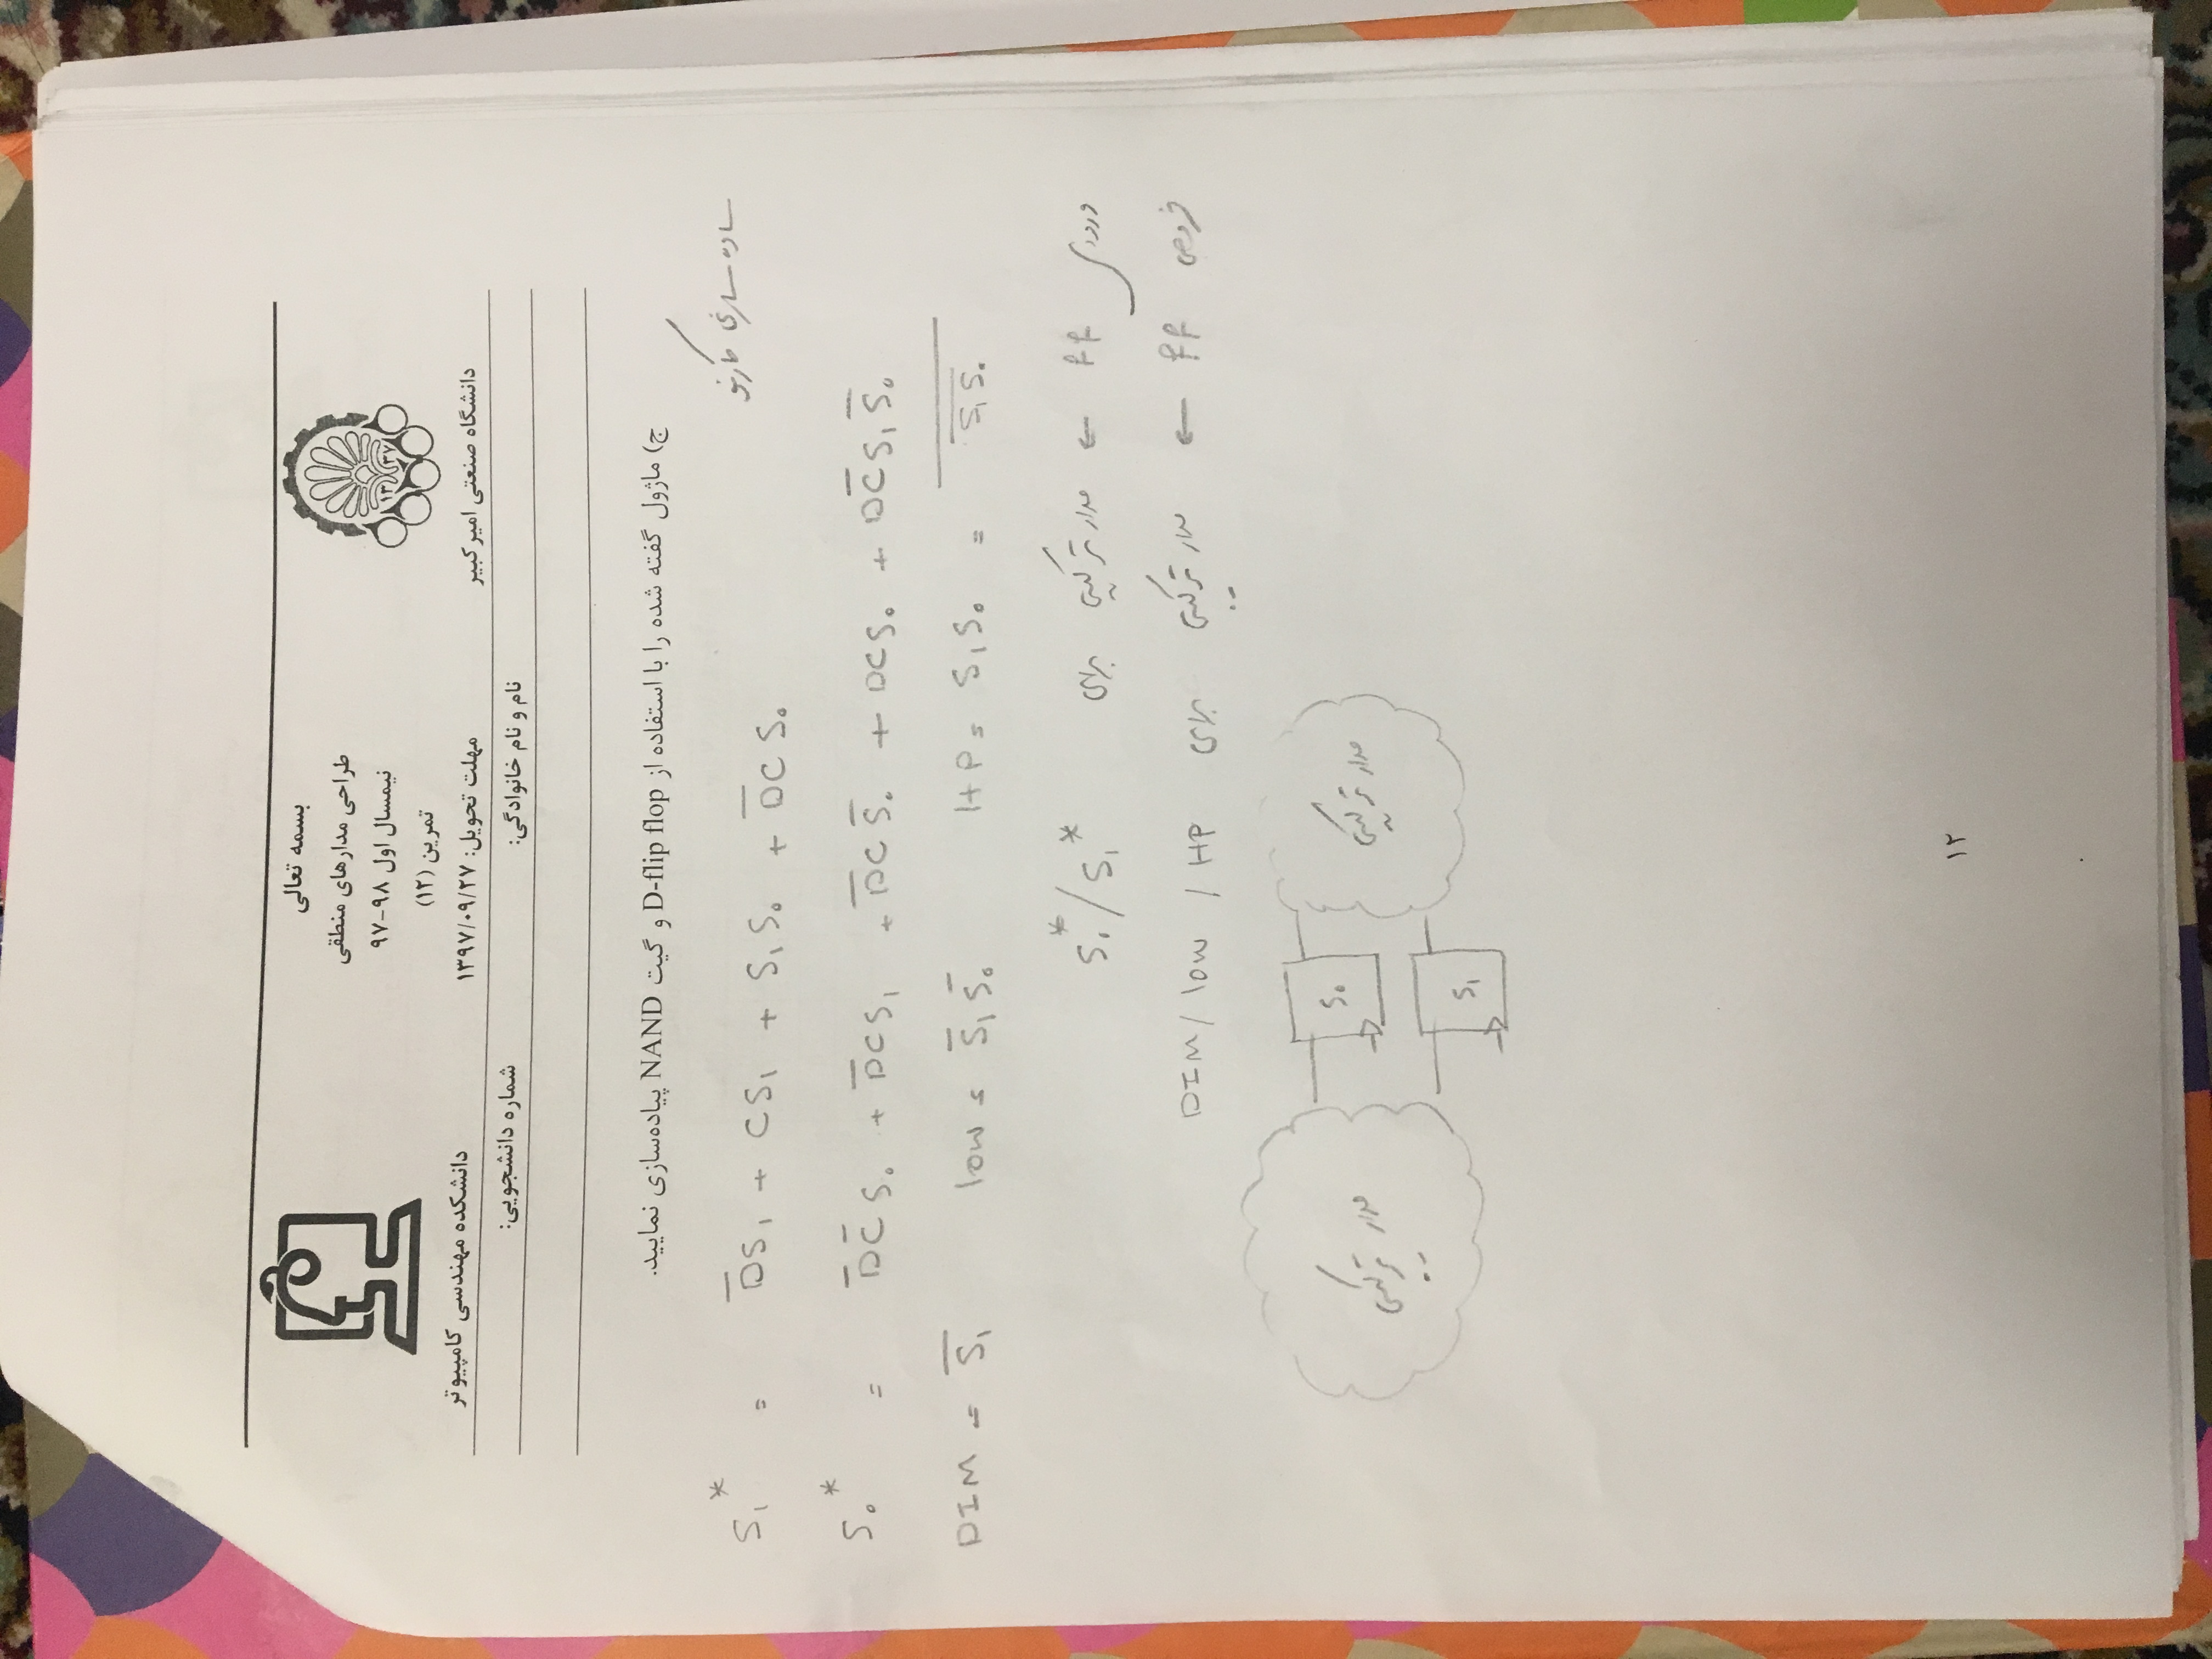 بسمه تعالی
طراحی مدارهای منطقی
نیمسال اول ۹۸-۹۷
تمرین (۱۲)
۱۳ ۳۷
دانشگاه صنعتی امیرکبیر مهلت تحویل: ۱۳۹۷/۰۹/۲۷ دانشکده مهندسی کامپیوتر
نام و نام خانوادگی: شماره دانشجویی:
ج) ماژول گفته شده را با استفاده از D-flip flop و گیت NAND پیاده‌سازی نمایید.
ساده سازی کارنو
S₁* = D̅S₁ + CS₁ + S₁S₀ + D̅CS₀
S₀* = D̅C̅S₀ + D̅CS₁ + D̅CS̅₀ + DCS₀ + DC̅S₁S̅₀
DIM = S̅₁ low = S̅₁S̅₀ HP = S₁S₀ = \overline{\overline{S₁S₀}}
ورودی FF ← مدار ترکیبی برای S₀*/S₁*
خروجی FF ← مدار ترکیبی برای DIM/low/HP
مدار ترکیبی S₀ مدار ترکیبی
S₁
۱۲